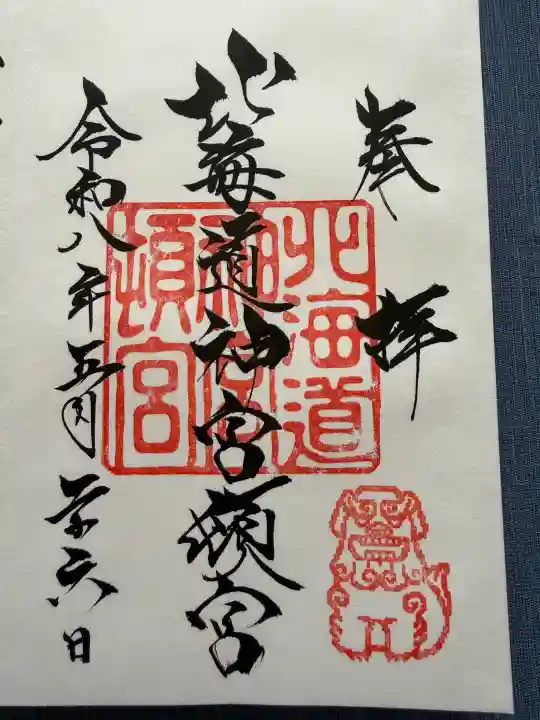 奉拝
北海道神宮頓宮
令和八年五月二十六日
北海道
神宮
頓宮